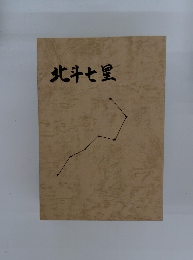 北斗七星